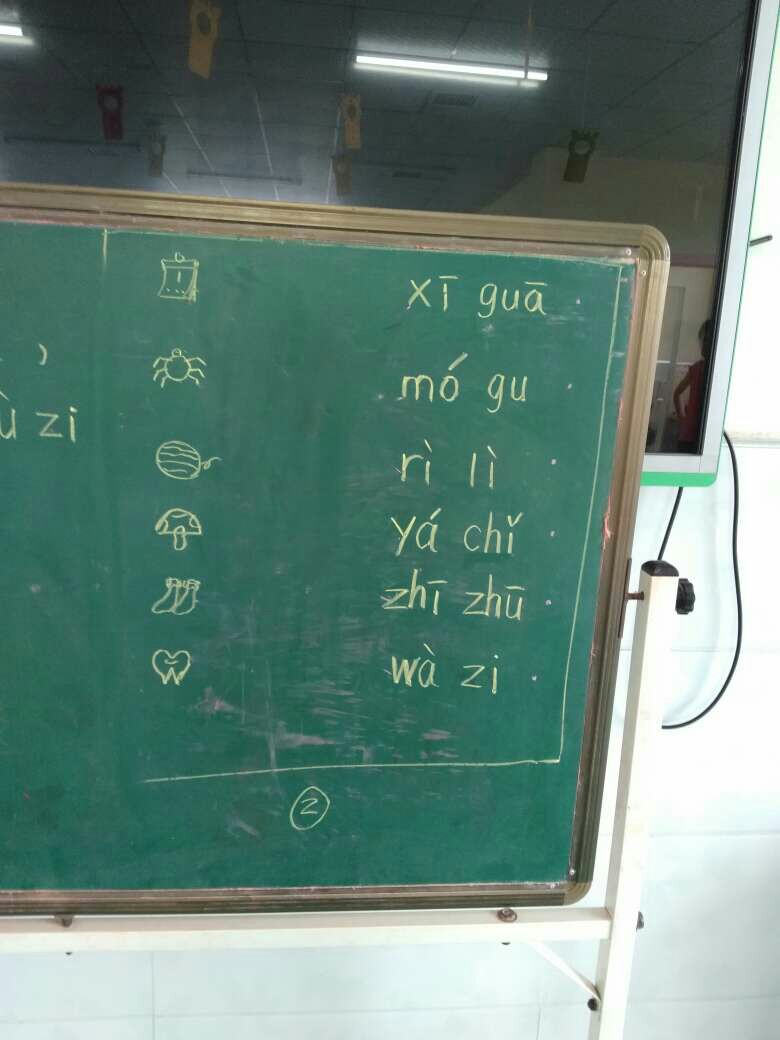 xī guā
mó gu
rì lì
zi
yá chǐ
zhī zhū
wà zi
2